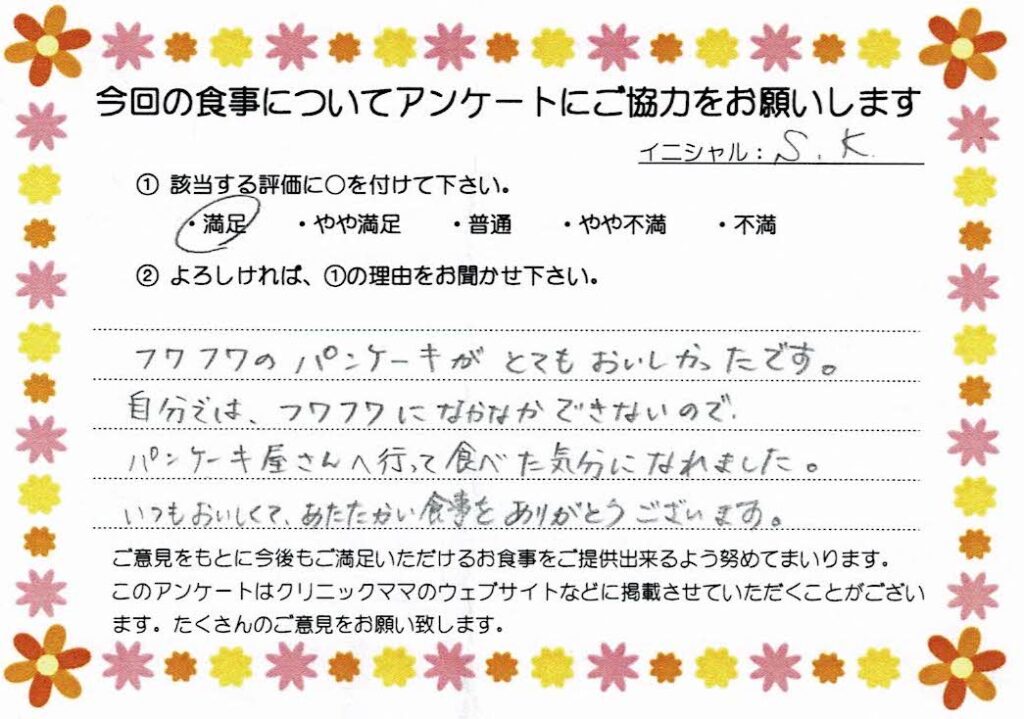 今回の食事についてアンケートにご協力をお願いします
イニシャル：S.K.
① 該当する評価に○を付けて下さい。
・満足 ・やや満足 ・普通 ・やや不満 ・不満
② よろしければ、①の理由をお聞かせ下さい。
フワフワのパンケーキがとてもおいしかったです。
自分では、フワフワになかなかできないので、
パンケーキ屋さんへ行って食べた気分になれました。
いつもおいしくて、あたたかい食事をありがとうございます。
ご意見をもとに今後もご満足いただけるお食事をご提供出来るよう努めてまいります。
このアンケートはクリニックママのウェブサイトなどに掲載させていただくことがござい
ます。たくさんのご意見をお願い致します。